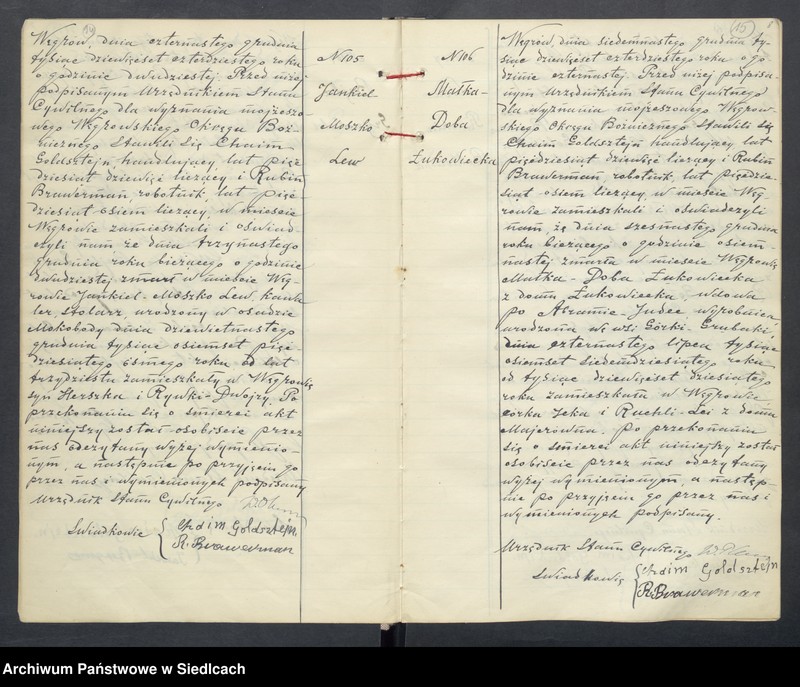 Węgrów, dnia czternastego grudnia
tysiąc dziewięćset czterdziestego roku
o godzinie dwudziestej. Przed niżej
podpisanym Urzędnikiem Stanu
Cywilnego dla wyznania mojżeszo-
wego Węgrowskiego Okręgu Boż-
nicznego stawili się Chaim
Goldsztejn handlujący lat pięć
dziesiąt dziewięć liczący i Rubin
Brawerman, robotnik, lat pięć
dziesiąt osiem liczący, w mieście
Węgrowie zamieszkali i oświad-
czyli nam że dnia trzynastego
grudnia roku bieżącego o godzinie
dwudziestej zmarł w mieście Wę-
growie Jankiel-Moszko Lew, kawa
ler, stolarz, urodzony w osadzie
Mokobody dnia dziewietnastego
grudnia tysiąc osiemset pięć
dziesiątego ósmego roku od lat
trzydziestu zamieszkały w Węgrowie
syn Herszka i Rywki-Dwojry. Po
przekonaniu się o śmierci akt
niniejszy został osobiście przez
nas odczytany wyżej wymienio-
nym, a następnie po przyjęciu go
przez nas i wymienionych podpisany
Urzędnik Stanu Cywilnego
Świadkowie
Chaim Goldsztejn
R. Brawerman
N105
Jankiel
Moszko
Lew
N106
Małka-
Doba
Łukowiecka
(15)
Węgrów, dnia siedemnastego grudnia ty-
siąc dziewięćset czterdziestego roku o go
dzinie czternastej. Przed niżej podpisa-
nym Urzędnikiem Stanu Cywilnego
dla wyznania mojżeszowego Węgrow-
skiego Okręgu Bożnicznego stawili się
Chaim Goldsztejn handlujący lat
pięćdziesiąt dziewięć liczący i Rubin
Brawerman, robotnik, lat pięćdzie-
siąt osiem liczący, w mieście Wę-
growie zamieszkali i oświadczyli
nam, że dnia szesnastego grudnia
roku bieżącego o godzinie osiem-
nastej zmarła w mieście Węgrowie
Małka-Doba Łukowiecka
z domu Łukowiecka, wdowa
po Abramie-Judce wyrobnica
urodzona we wsi Górki-Grubaki
dnia czternastego lipca tysiąc
osiemset siedemdziesiątego roku
od tysiąc dziewięćset dziesiątego
roku zamieszkała w Węgrowie
córka Icka i Ruchli-Lei z domu
Majerówna. Po przekonaniu
się o śmierci akt niniejszy został
osobiście przez nas odczytany
wyżej wymienionym, a następ-
nie po przyjęciu go przez nas i
wymienionych podpisany.
Urzędnik Stanu Cywilnego
Świadkowie
Chaim Goldsztejn
R. Brawerman
Archiwum Państwowe w Siedlcach